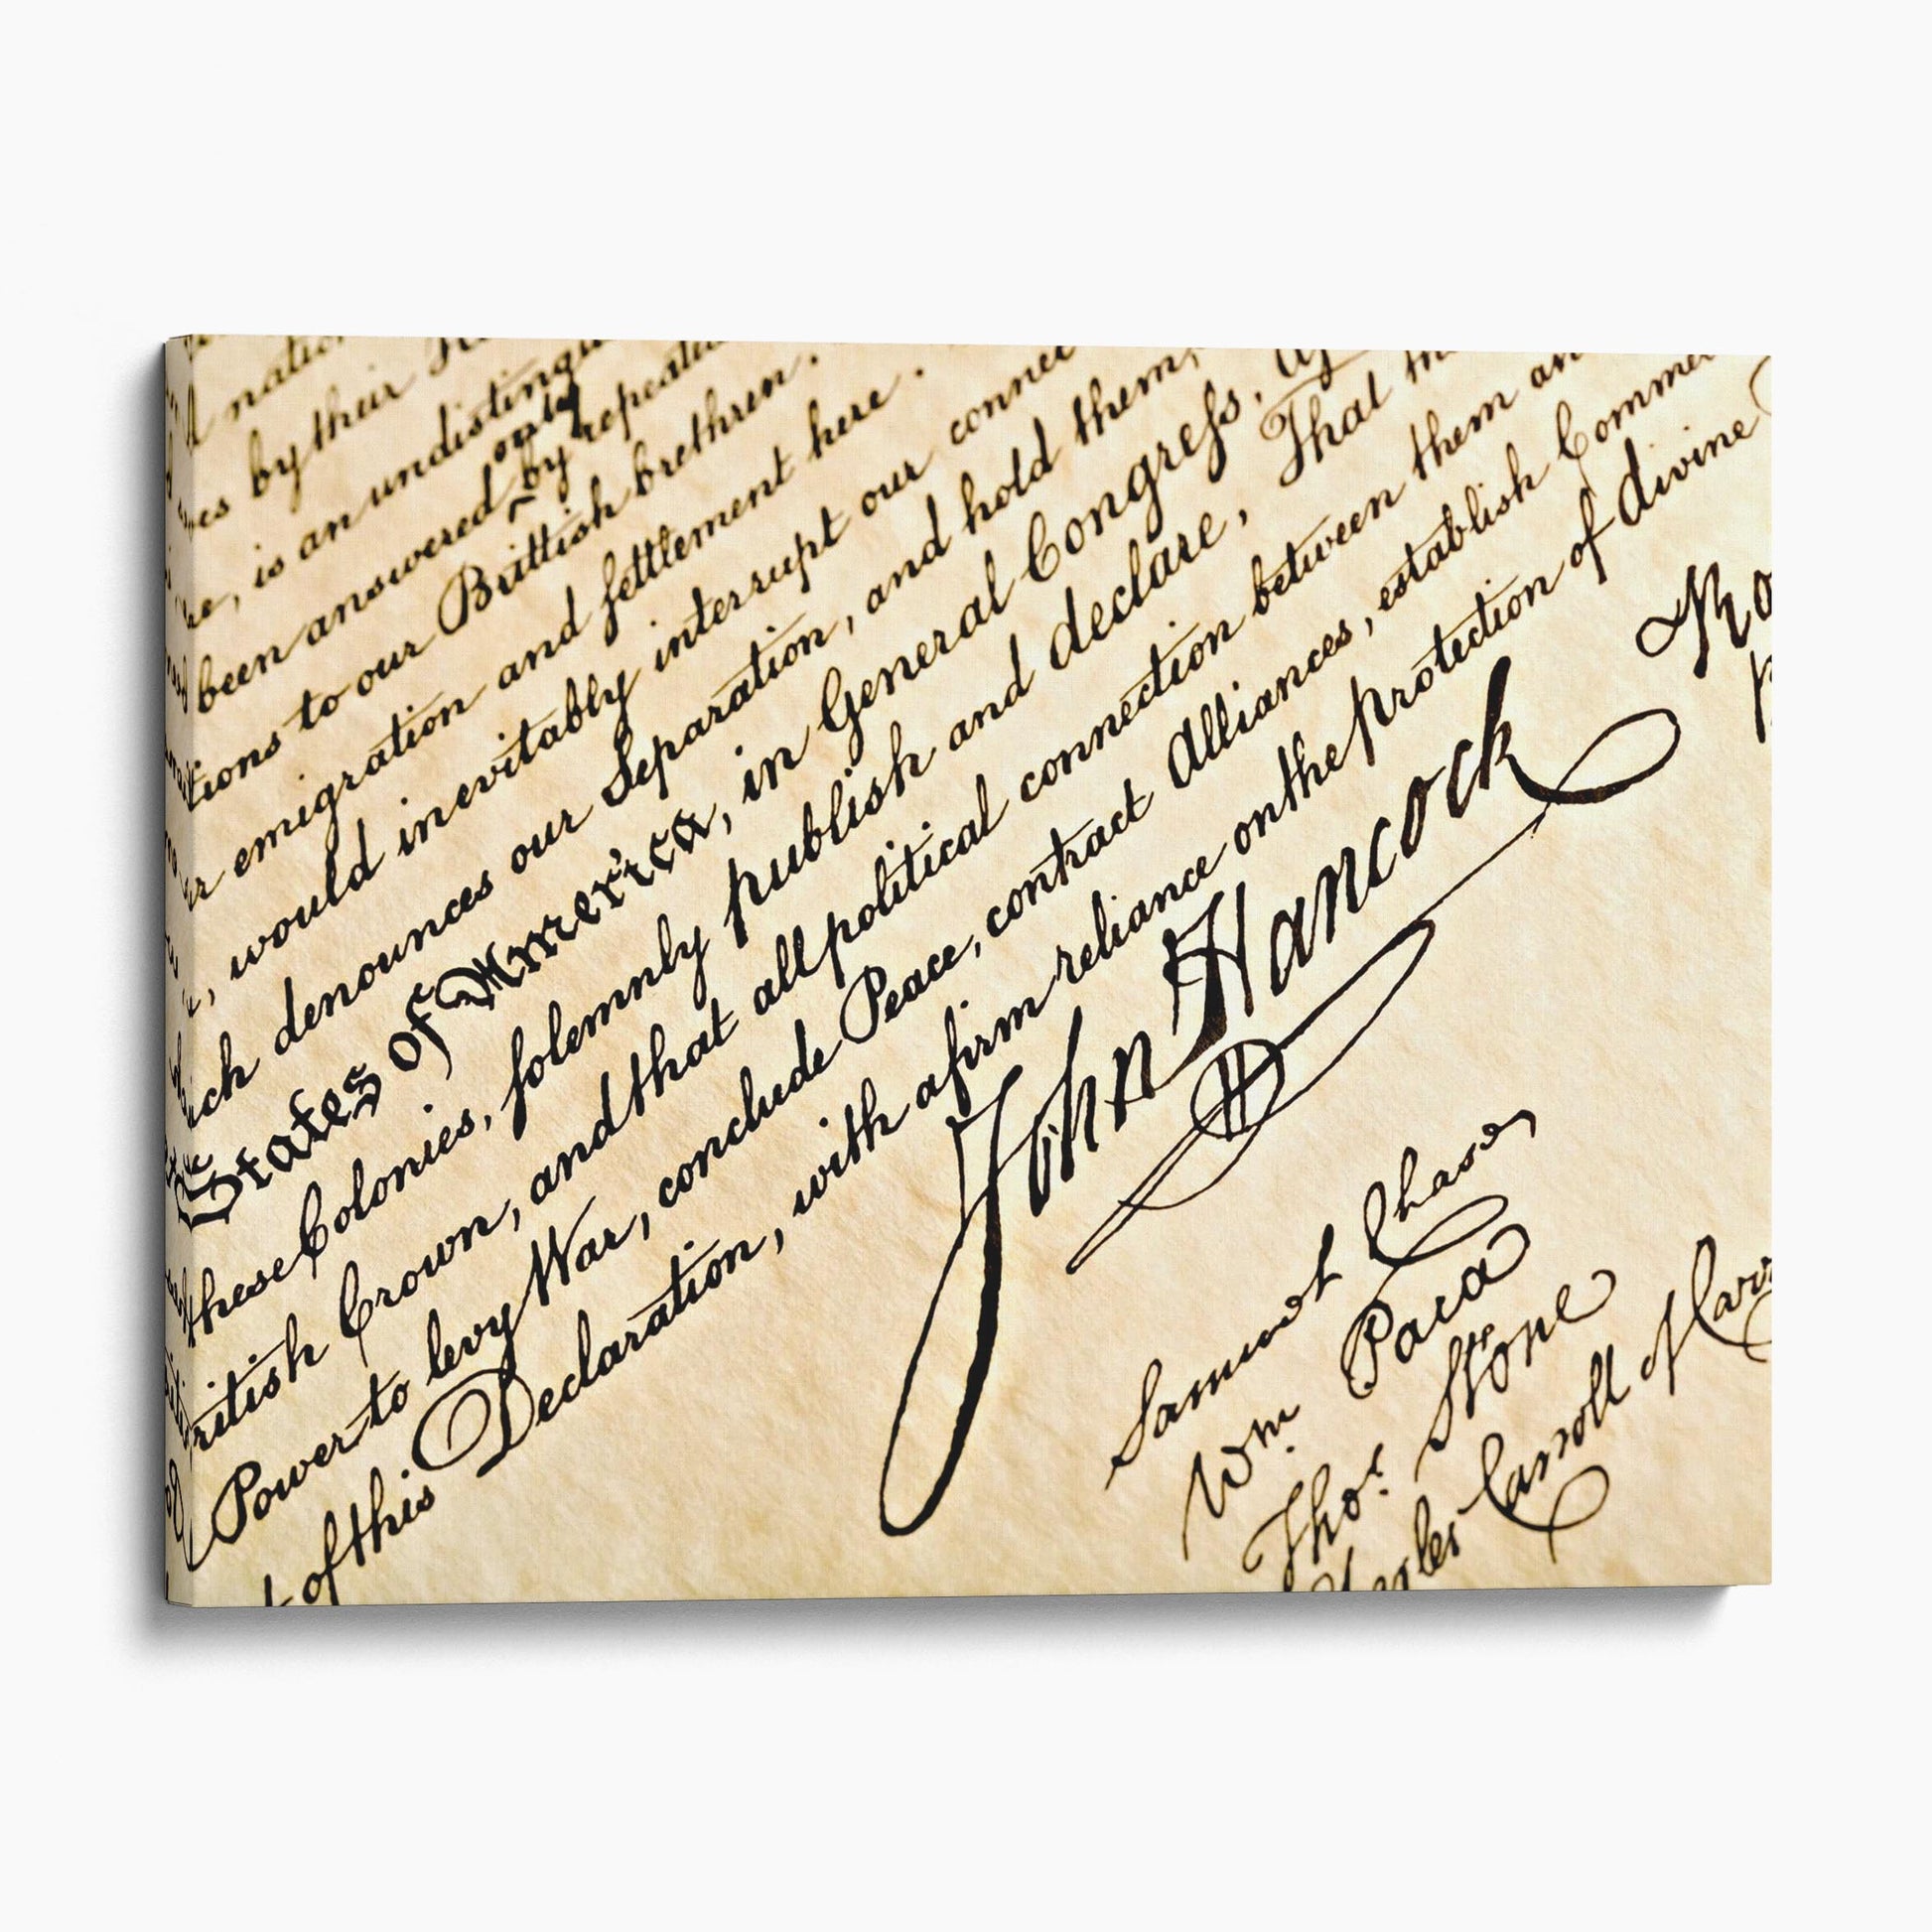 nation
by their
is an undisting
only
been answered by repeated
tions to our Brittish brethren.
emigration and settlement here.
, would inevitably interrupt our connec
denounces our Separation, and hold them,
States of America, in General Congress,
these Colonies, solemnly publish and declare, That
ritish Crown, and that all political connection between them an
Power to levy War, conclude Peace, contract Alliances, establish Commer
of this Declaration, with a firm reliance on the protection of divine
John Hancock
Samuel Chase
Wm. Paca
Thos. Stone
Carroll of Carr